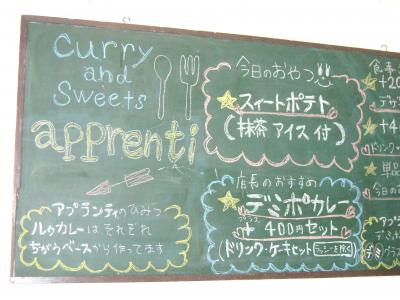 curry
and
Sweets
apprenti
アプランティのひみつ
ルゥカレーはそれぞれ
ちがうベースから作ってます
今日のおやつ
スィートポテト
(抹茶アイス付)
店長のおすすめ
デミポカレー
プラス
+400円セット
(ドリンク・ケーキセット(ラッシーを除く)
食事
+20
デザ
+4
ドリンク
単品
今日の
アプ
デミオ